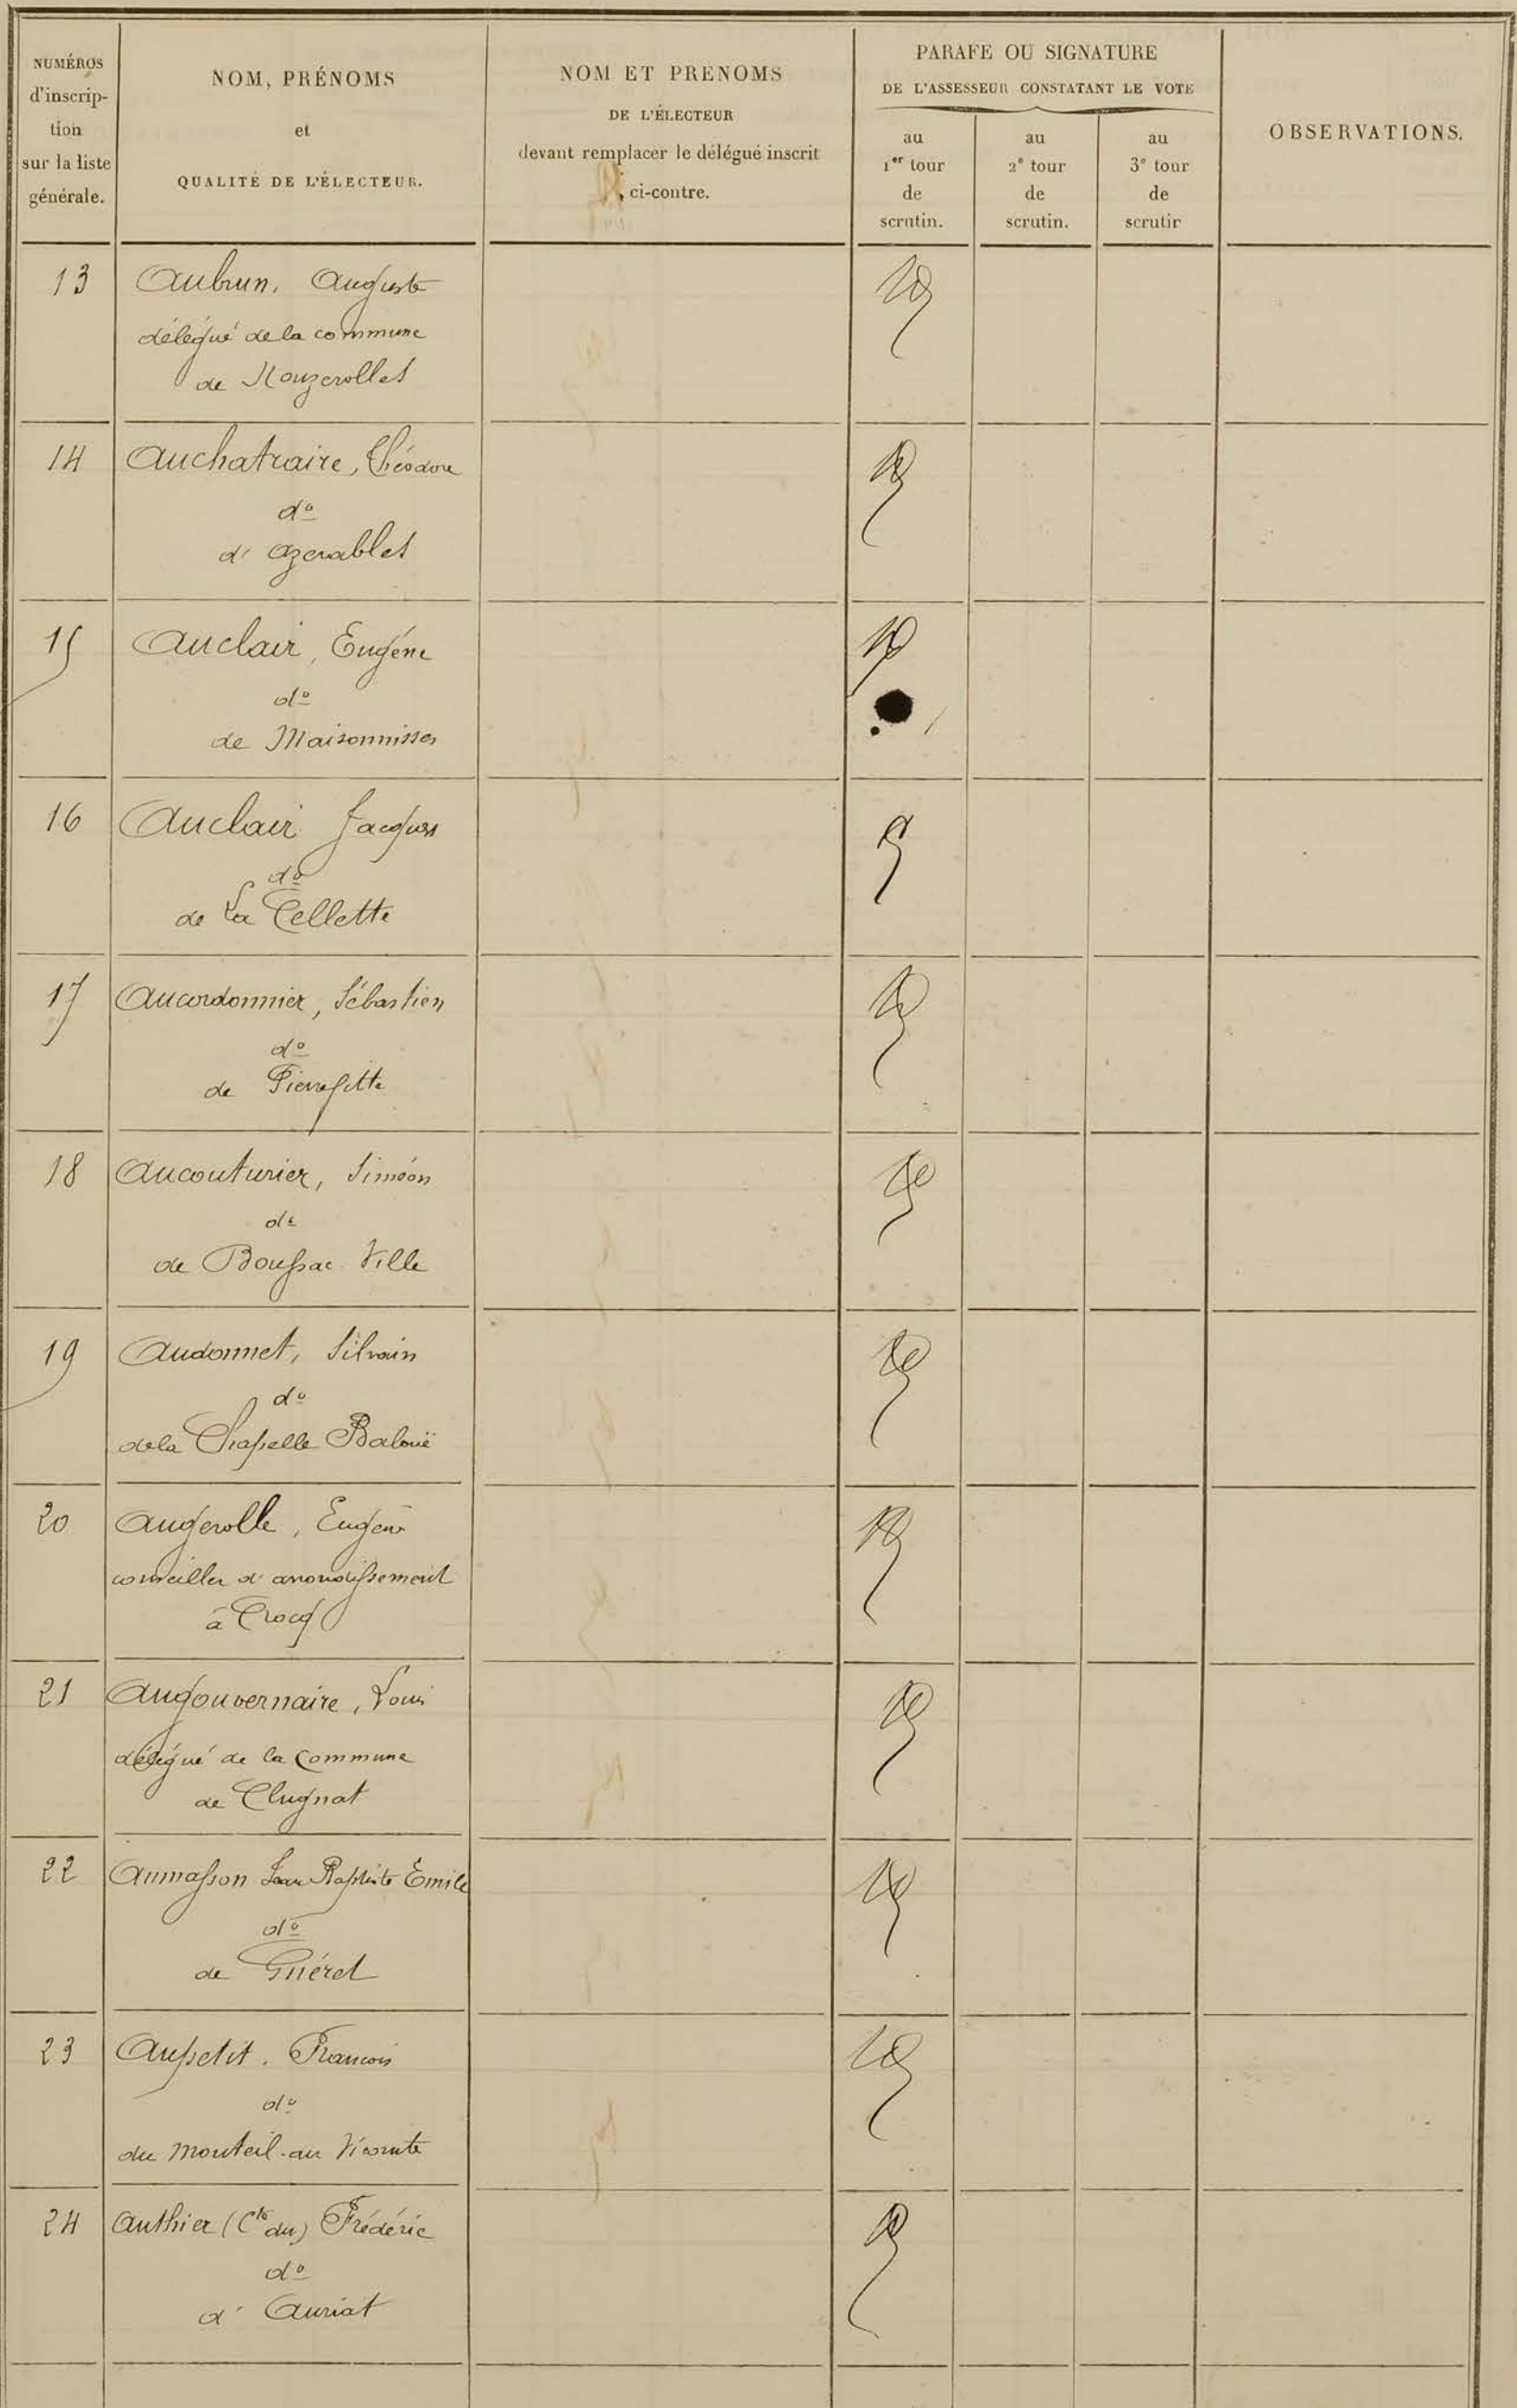 NUMÉROS
d'inscrip-
tion
sur la liste
générale.
NOM, PRÉNOMS
et
QUALITÉ DE L'ÉLECTEUR.
NOM ET PRENOMS
DE L'ÉLECTEUR
devant remplacer le délégué inscrit
ci-contre.
PARAFE OU SIGNATURE
DE L'ASSESSEUR CONSTATANT LE VOTE
au
1er tour
de
scrutin.
au
2e tour
de
scrutin.
au
3e tour
de
scrutin
OBSERVATIONS.
13 Aubrun, Auguste
délégué de la commune
de Nouzerolles
14 Auchatraire, Théodore
do
d'Azerables
15 Auclair, Eugène
do
de Maisonnisses
16 Auclair Jacques
do
de La Cellette
17 Aucordonnier, Sébastien
do
de Pierrefitte
18 Aucouturier, Siméon
do
de Boussac-Ville
19 Audonnet, Silvain
do
de la Chapelle Baloüe
20 Augerolle, Eugène
conseiller d'arrondissement
à Crocq
21 Augouvernaire, Louis
délégué de la Commune
de Clugnat
22 Aumasson Jean Baptiste Emile
do
de Guéret
23 Aupetit. François
do
du Monteil-au Vicomte
24 Authier (Cte du) Frédéric
do
d'Auriat